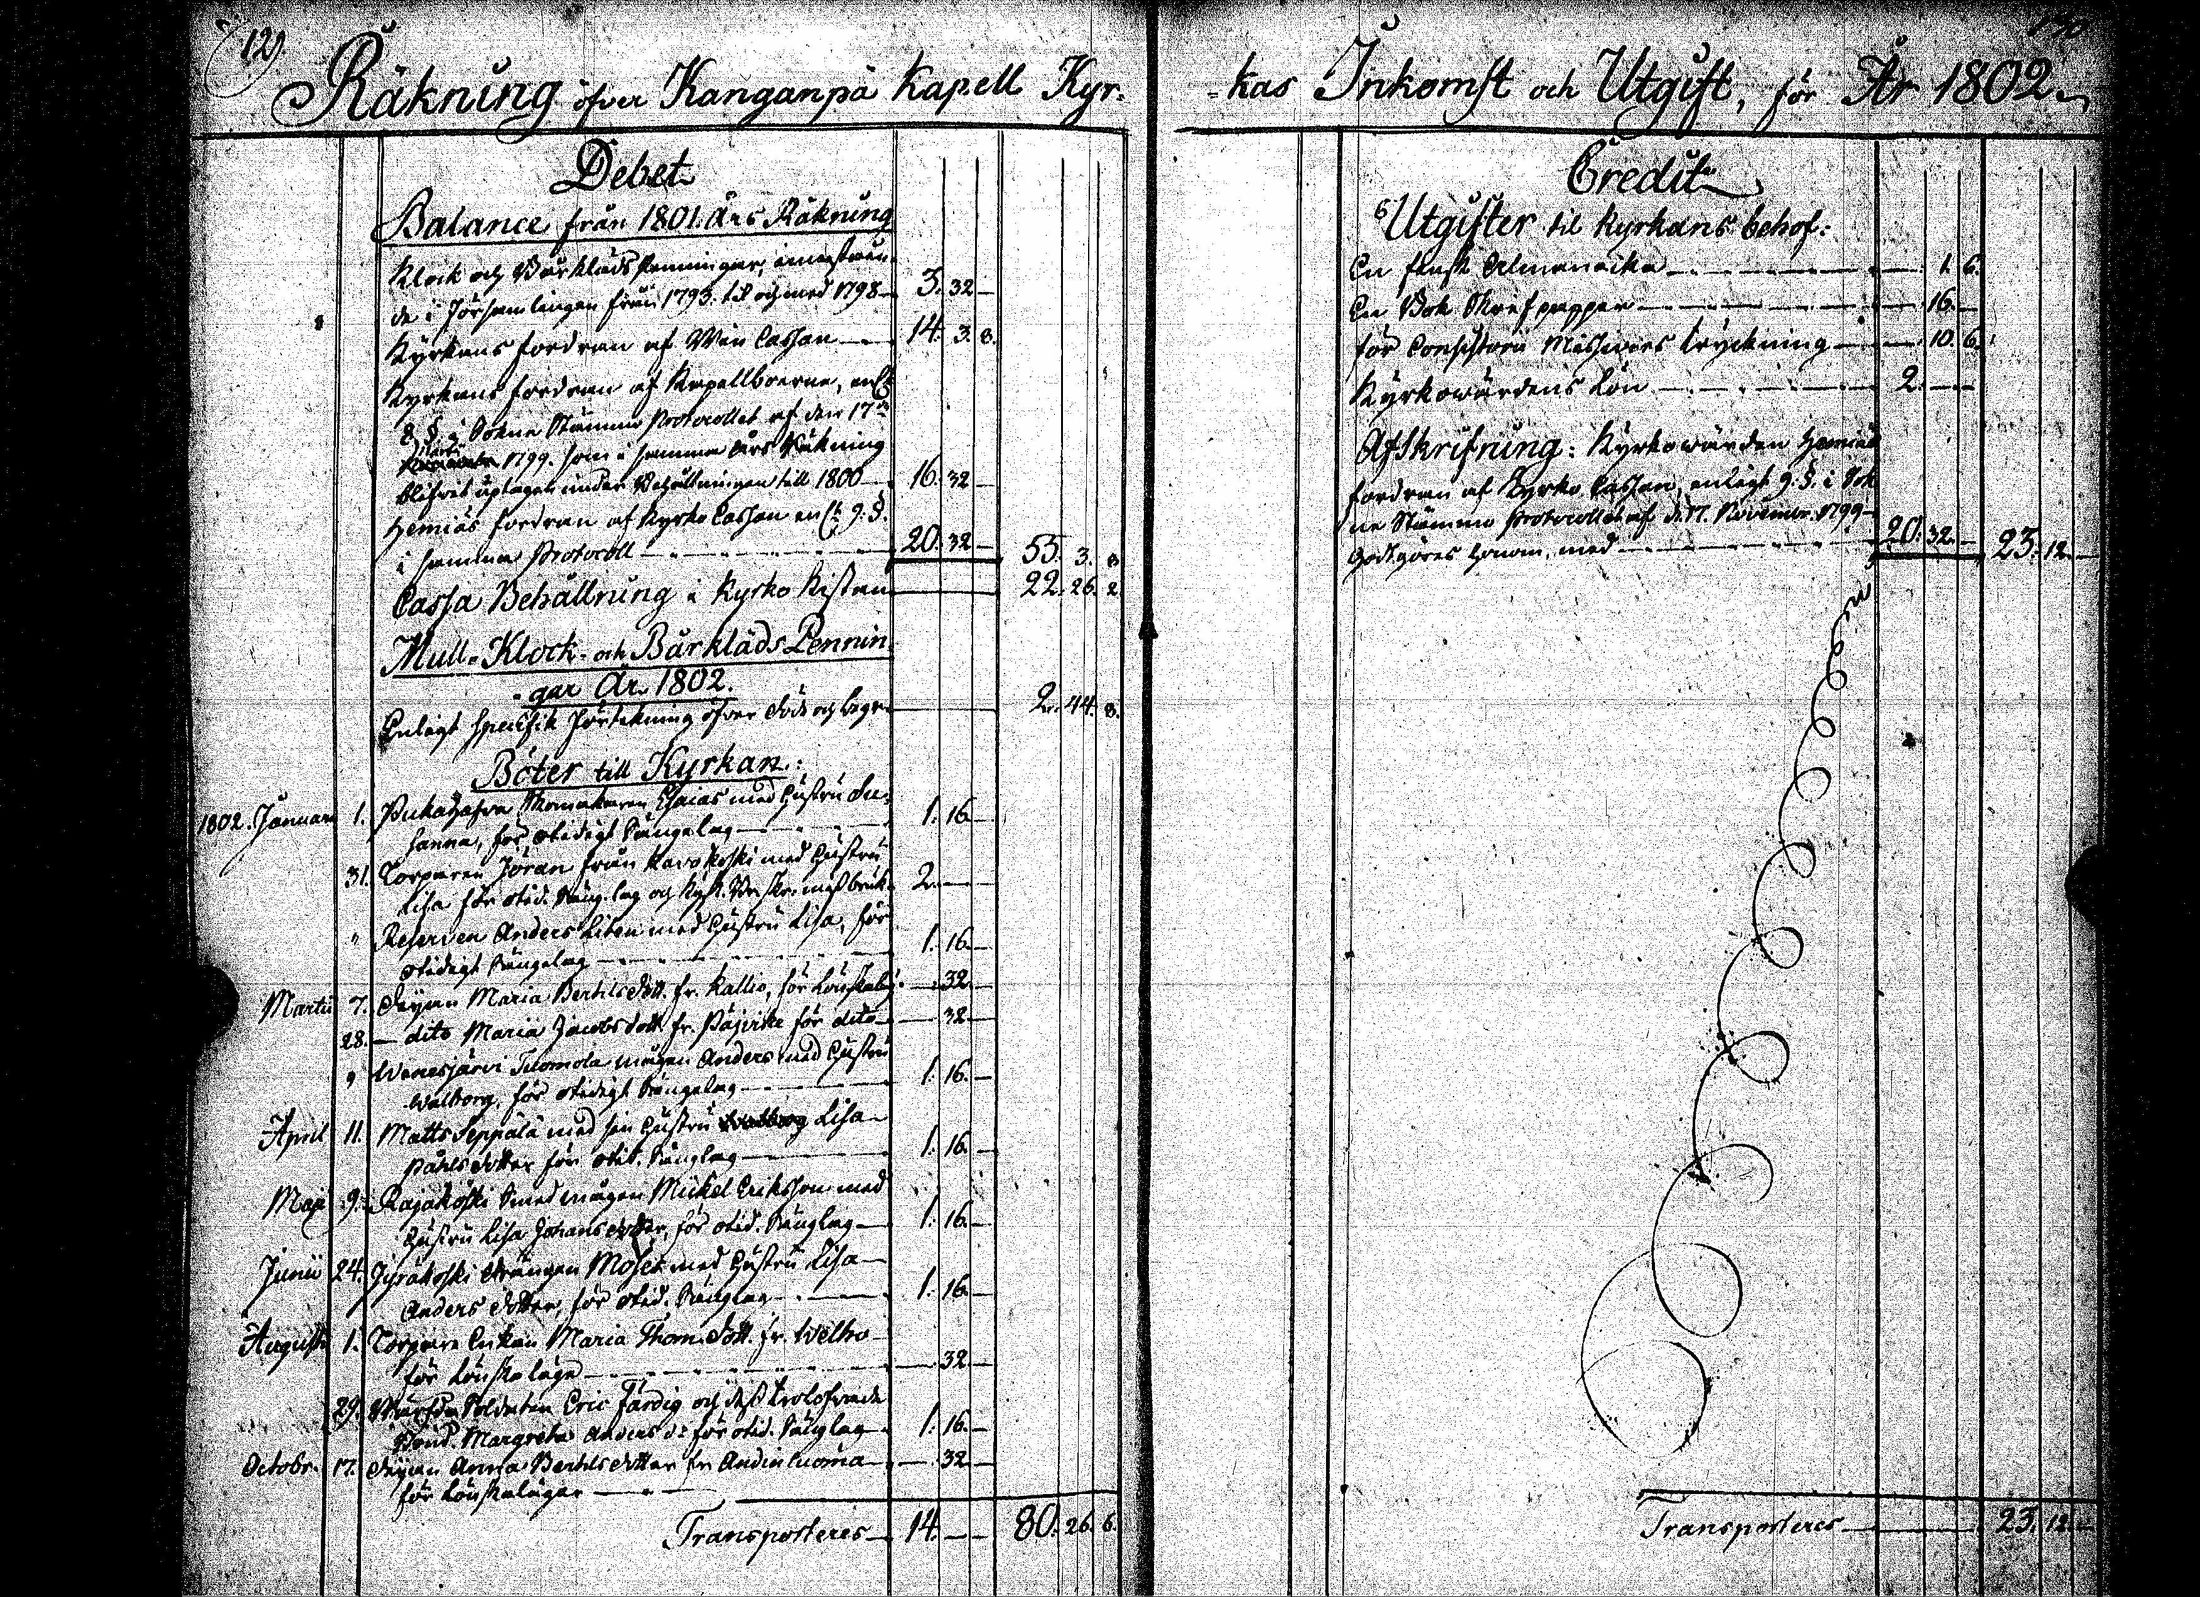 129.
Räkning öfver Kanganpä Kapell Kyr=
Debet
Balance från 1801. Års Räkning
Klock och Bårkläds Penningar, innestaen-
de i Församlingen från 1793. till och med 1798 — 3. 32 —
Kyrkans fordran af Win Cassan — 14. 3. 8.
Kyrkans fordran af Kapellboerne, enl.
8 §. i Sokne Stämmo Protocollet af den 17de
Martii 1799. som i samma Års Räkning
blifvit uptagen under Behållningen till 1800 — 16. 32 —
Hemiäs fordran af Kyrko Cassan enl. 9. §.
i samma Protocoll — 20. 32 — 55. 3. 8
Cassa Behållning i Kyrko Kistan — 22. 26. 2
Mull- Klock- och Bårkläds Pennin
-gar År 1802.
Enligt specifik Förtekning öfver Föde och begr. — 2. 44. 8.
Böter till Kyrkan:
1802. Januari 1. Esaias med Hustru Su-
sanna, för otidigt Sängelag — 1. 16 —
31. Torparen Jöran från Kavokoski med Hustru
Lisa för otid. Säng.lag och — 2. —
" Reserven Anders Liten med Hustru Lisa, för
otidigt Sängelag — 1. 16 —
Martii 7. Pigan Maria Bertils dott. fr. Kallio, för Lönskaläg. — 32 —
28. — dito Maria Jacobs dott. fr. för dito — 32 —
" Wenesjärvi Tuomola mågen Anders med Hustru
Walborg, för otidigt Sängelag — 1. 16 —
April 11. Matts Seppälä med sin Hustru Lisa
Påhls dotter för otid. Sänglag — 1. 16 —
Maji 9. Rajakoski Smed mågen Mickel Eriksson med
Hustru Lisa Johans dotter, för otid. Sänglag — 1. 16 —
Junii 24. Jyräkoski drängen Moses med Hustru Lisa
Anders dotter, för otid. Sänglag — 1. 16 —
Augusti 1. Torpare Enkan Maria Thom. dott. fr.
för Lönskaläge — 32 —
29. Soldaten Eric Färdig och dess trolofvade
Margreta Anders d: för otid. Sänglag — 1. 16 —
Octobr. 17. Pigan Anna Bertils dotter fr. Andinluoma — 32 —
för Lönskaläger —
Transporteres — 14. — 80. 26. 6.
=kas Inkomst och Utgift, för År 1802.
Credit
Utgifter til Kyrkans behof:
En finsk Almanacka — 1. 6.
En Bok Skrifpapper — 16. —
för Consistorii Missivers tryckning — 10. 6.
Kyrkowärdens Lön — 2. —
Afskrifning: Kyrkowärden Hemiäs
fordran af Kyrko Cassan, enligt 9. §. i Sok
ne Stämmo Protocollet af d. 17. Novembr. 1799
godtgöres honom, med — 20. 32. — 23. 12. —
Transporteres — 23. 12. —